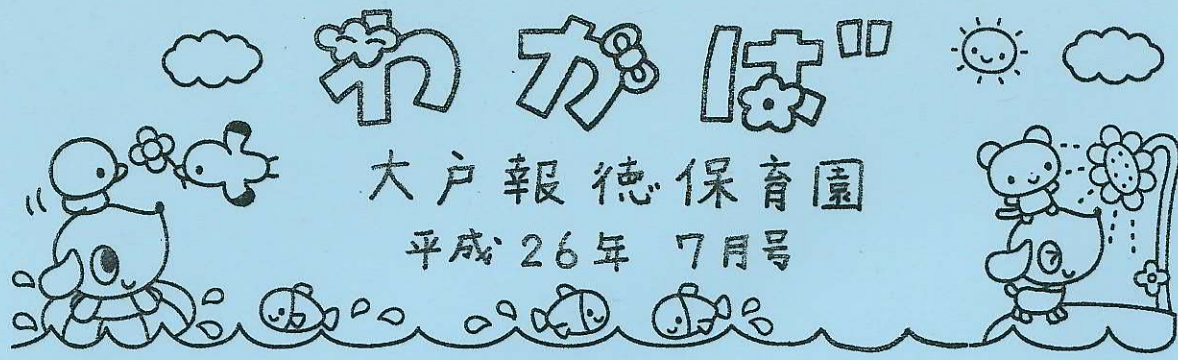 わかば
大戸報徳保育園
平成26年 7月号